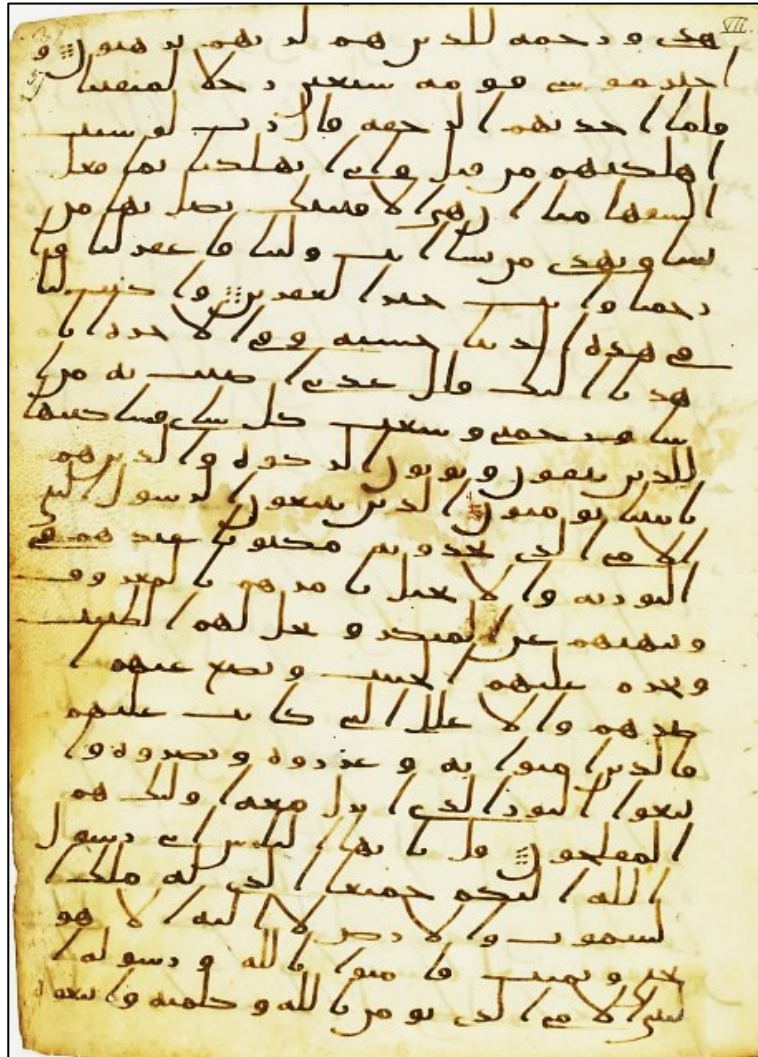 VII.
هدى ورحمة للذين هم لربهم يرهبون و
اختر موسى قومه سبعين رجلا لميقتنا
فلما اخذتهم الرجفة قال رب لو شيت
اهلكتهم من قبل وايي اتهلكنا بما فعل
السفها منا ان هي الا فتنتك تضل بها من
تشا وتهدي من تشا انت ولينا فاغفر لنا وا
رحمنا وانت خير الغفرين واكتب لنا
في هذه الدنيا حسنة وفي الاخرة انا
هدنا اليك قال عذبي اصيب به من ا
شا ورحمتي وسعت كل شي فساكتبها
للذين يتقون ويوتون الزكوة والذين هم
بايتنا يومنون الذين يتبعون الرسول النبي
الامي الذي يجدونه مكتوبا عندهم في
التورية والانجيل يامرهم بالمعروف
وينهيهم عن المنكر ويحل لهم الطيبت
ويحرم عليهم الخبيث ويضع عنهم ا
صرهم والاغلل التي كانت عليهم
فالذين امنوا به وعزروه ونصروه وا
تبعوا النور الذي انزل معه اوليك هم
المفلحون قل يايها الناس اني رسول
الله اليكم جميعا الذي له ملك ا
لسموت والارض لا اله الا هو
يحي ويميت فامنوا بالله ورسوله ا
لنبي الامي الذي يومن بالله وكلمته واتبعوه